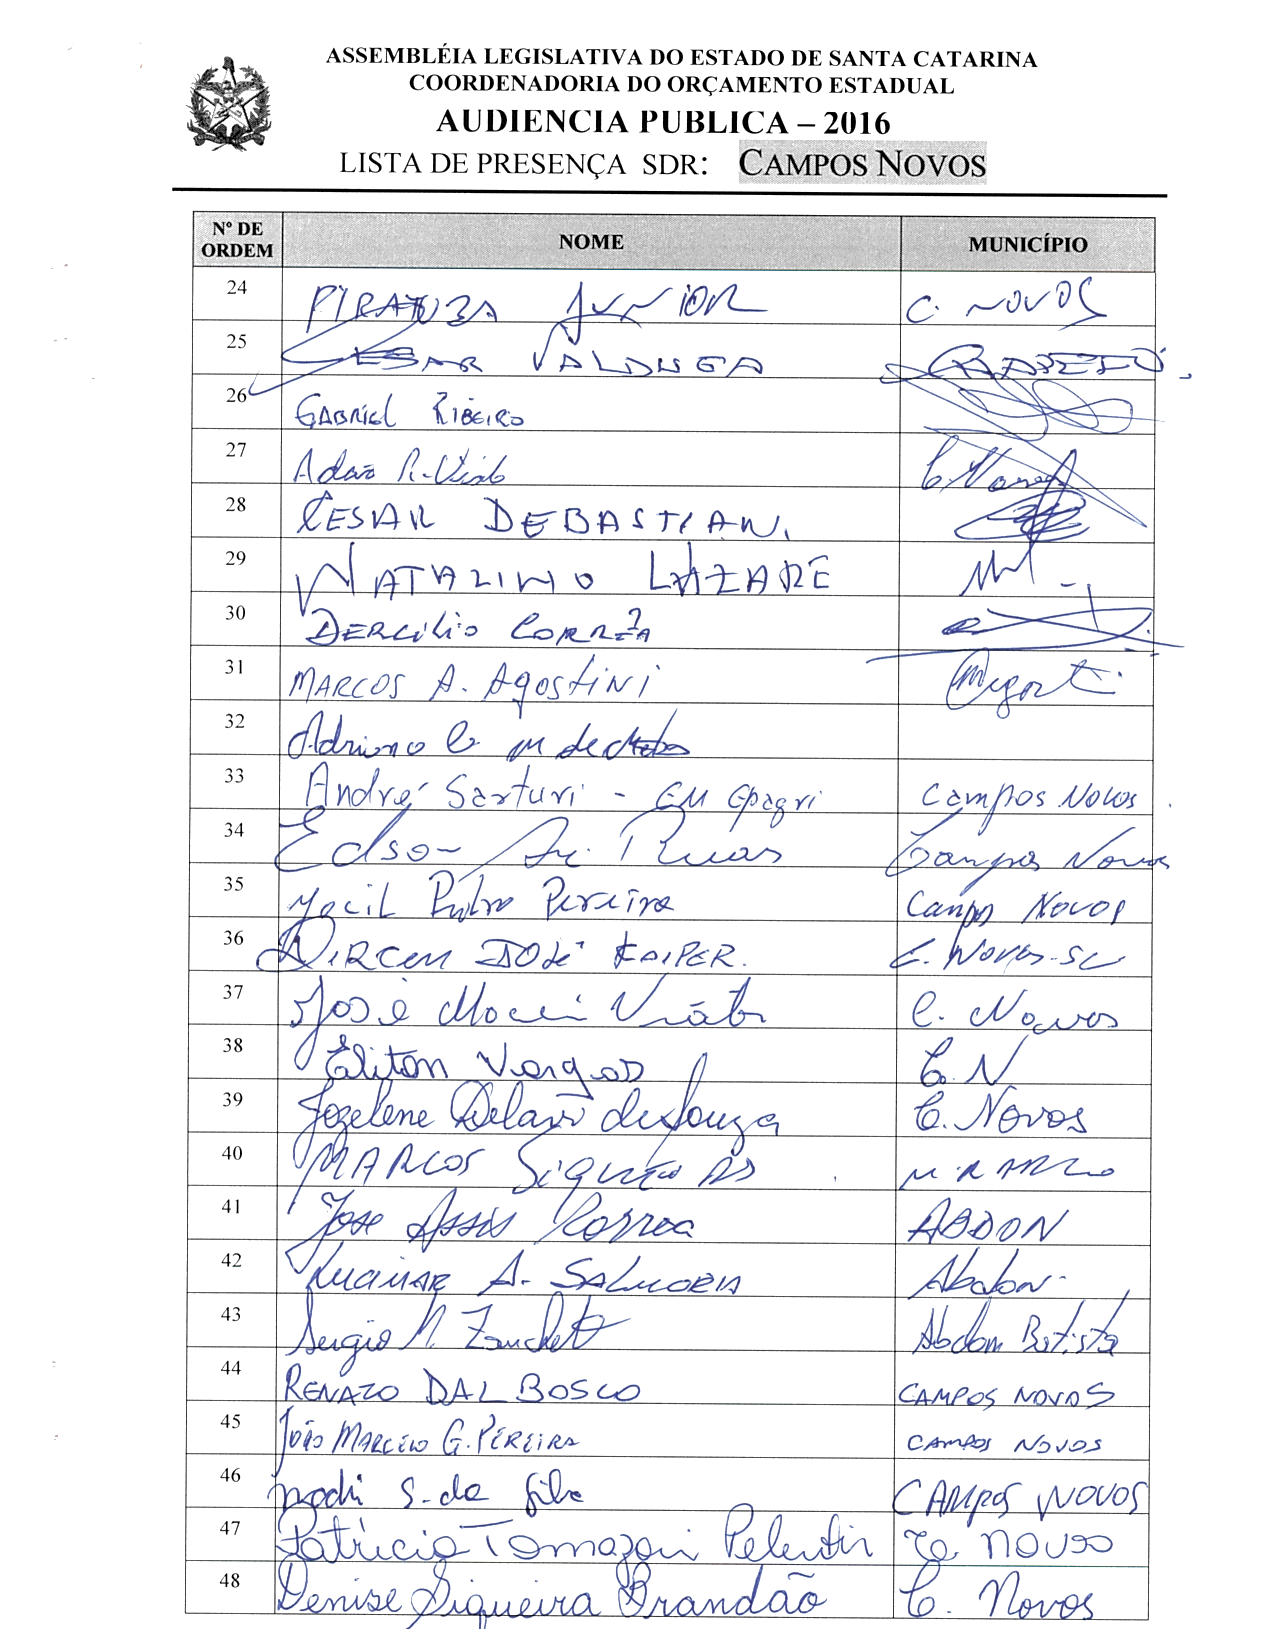 ASSEMBLÉIA LEGISLATIVA DO ESTADO DE SANTA CATARINA
COORDENADORIA DO ORÇAMENTO ESTADUAL
AUDIENCIA PUBLICA – 2016
LISTA DE PRESENÇA SDR: CAMPOS NOVOS
Nº DE ORDEM NOME MUNICÍPIO
24 PIRATUBA JUNIOR C. NOVOS
25 CESAR VALDUGA
26 GABRIEL RIBEIRO
27 Adão R.
28 CESAR DEBASTIANI
29 NATALINO LAZARE
30 DERCILIO CORRÊA
31 MARCOS A. AGOSTINI
32 Adriano
33 André Sarturi - EM Epagri Campos Novos
34 Edson Campos Novos
35 Pedro Pereira Campos Novos
36 DIRCEU JOSÉ KAIPER. C. NOVOS-SC
37 José C. Novos
38 Eliton Vargas C. N
39 Jozelene de Souza C. Novos
40 MARCOS
41 JOSE ASSIS CORREA ABDON
42 A. SALMORIA Abdon
43 Sergio Abdon Batista
44 RENATO DAL BOSCO CAMPOS NOVOS
45 JOÃO MARCELO G. PEREIRA CAMPOS NOVOS
46 S. da Silva CAMPOS NOVOS
47 Patricia Tomazoni Pelentir
48 Denise Siqueira Brandão C. Novos